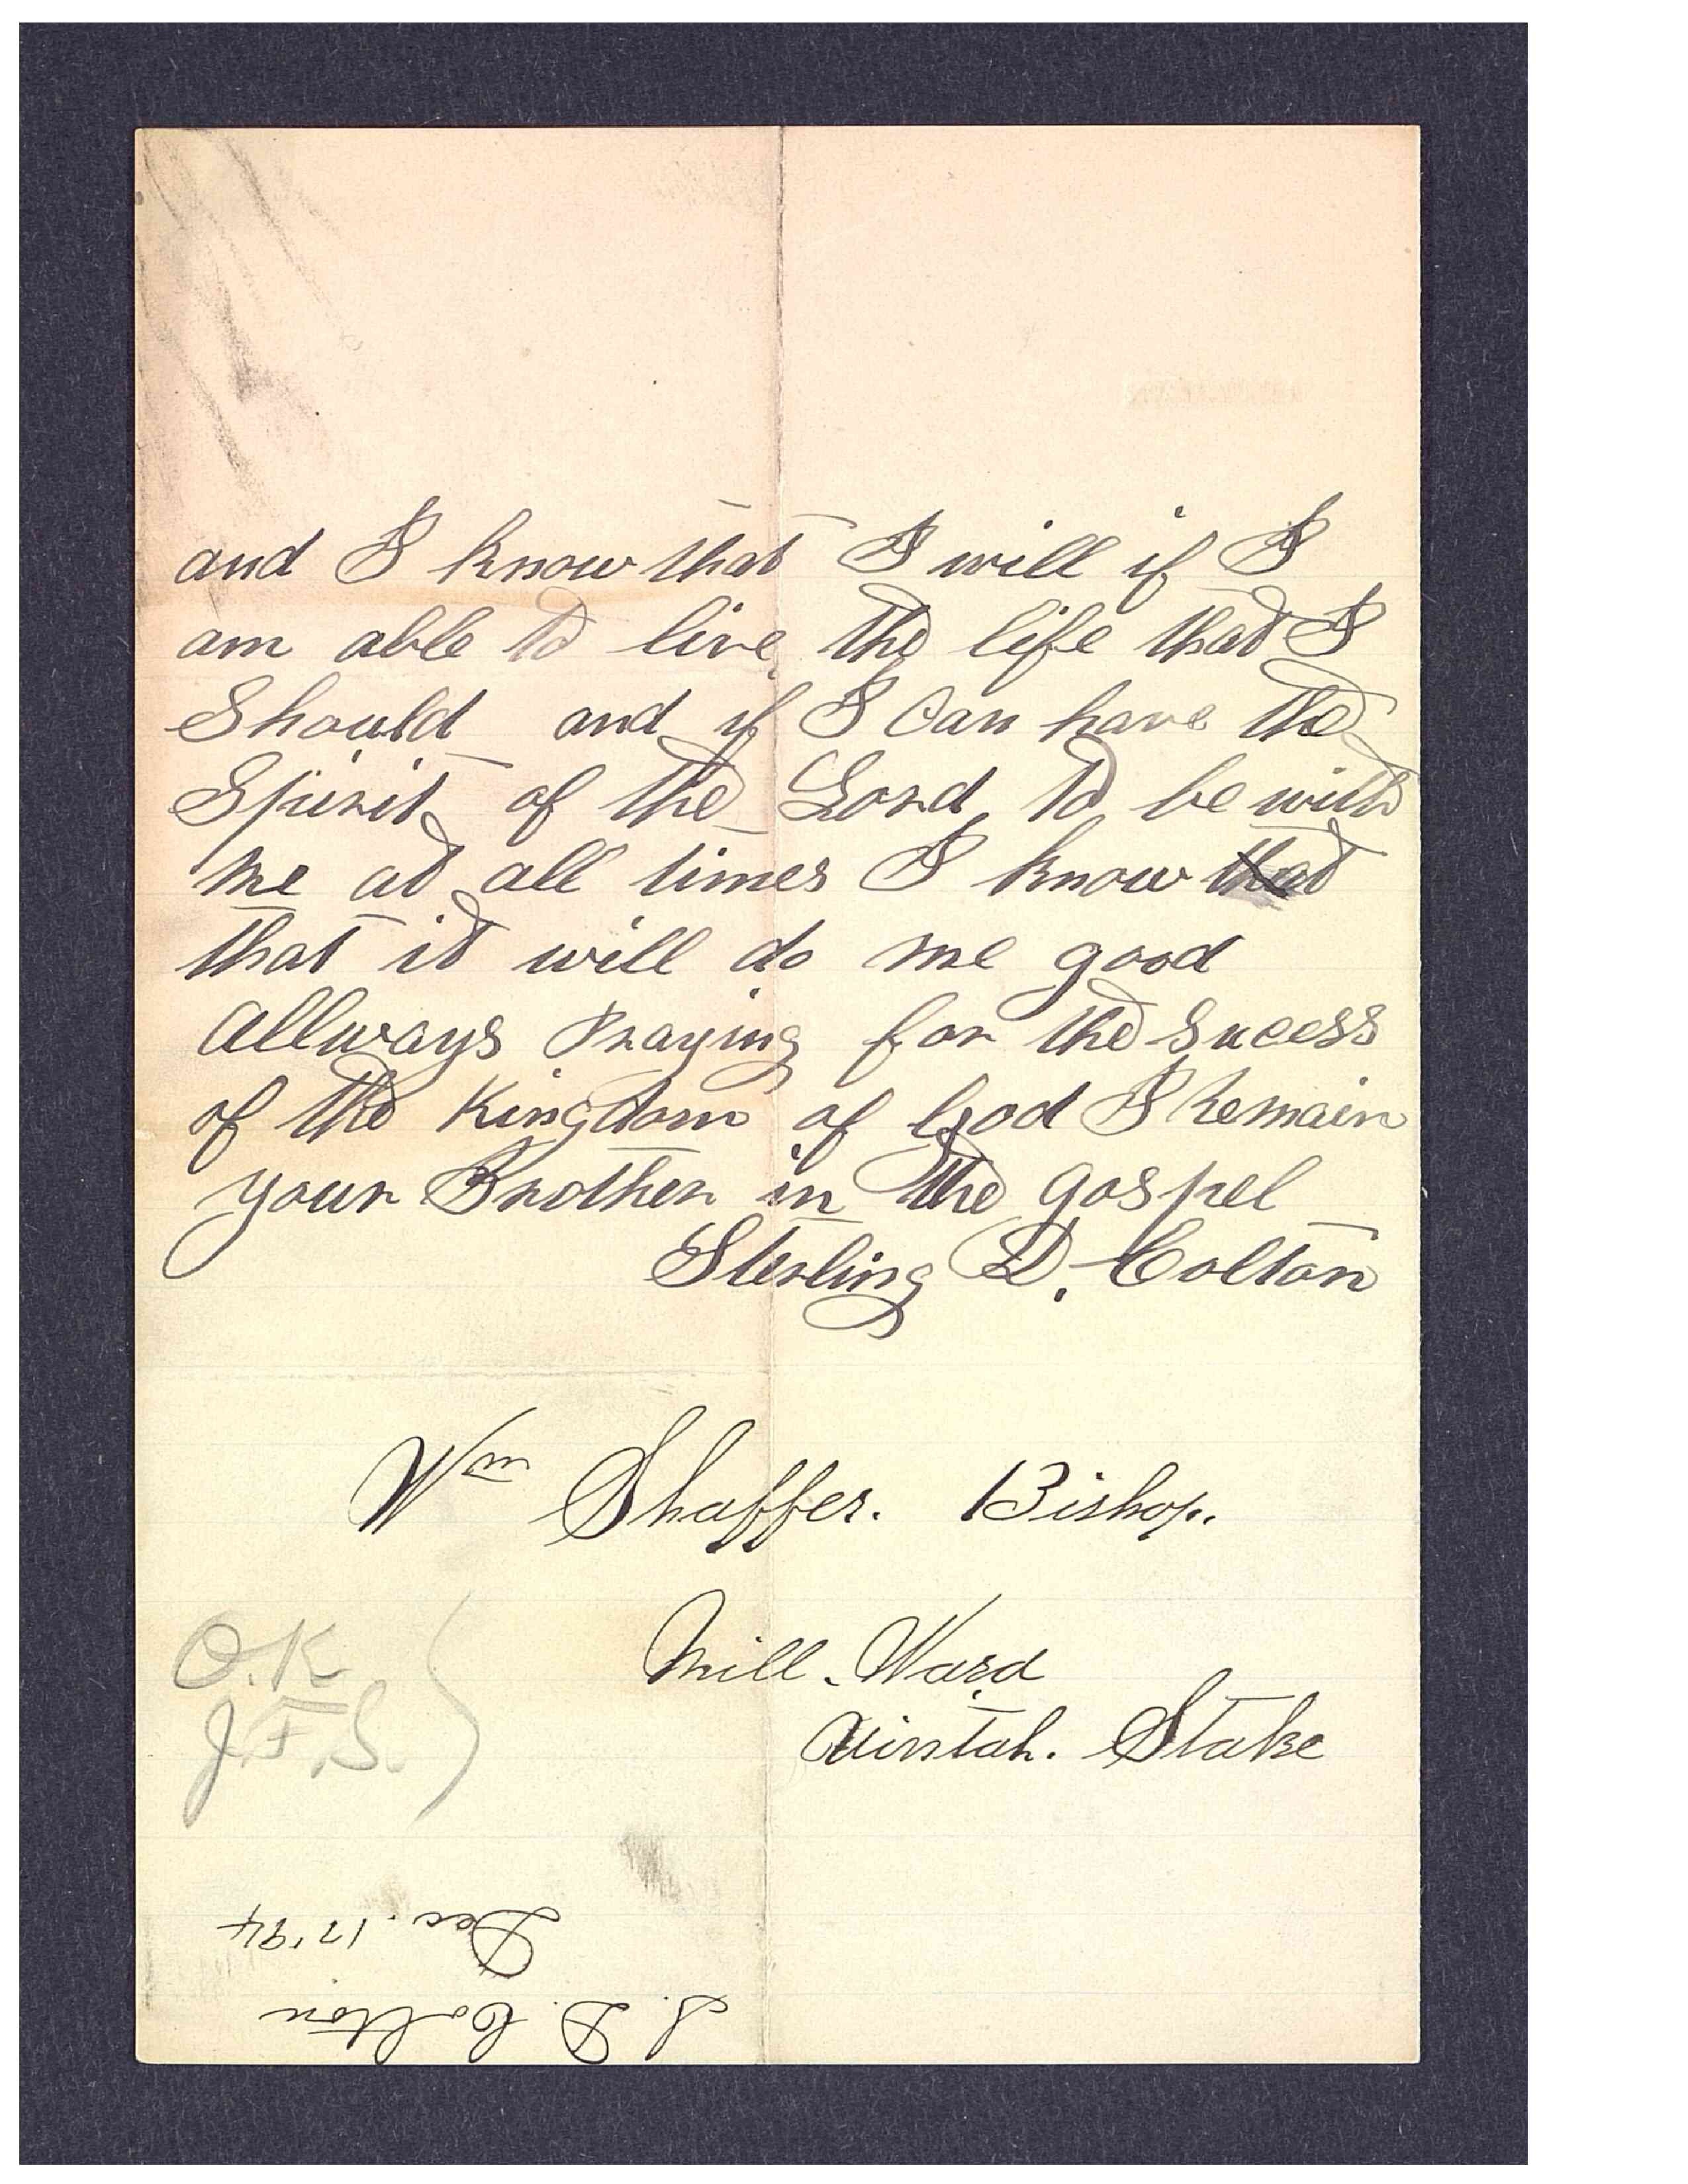 and I know that I will if I
am able to live the life that I
Should and if I Can have the
Spirit of the Lord to be with
me at all times I know that
that it will do me good
Allways Praying for the Sucess
of the Kingdom of God I Remain
your Brother in the gospel
Sterling D. Colton
Wm Shaffer. Bishop.
Mill. Ward
Uintah. Stake
O.K
J.F.S.
S. D. Colton
Dec. 17 '94